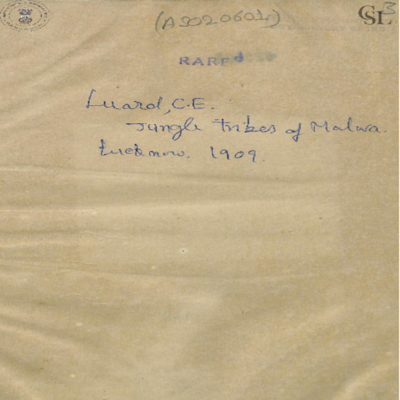 (AS020601)
CSL
3
RARE
Luard, C.E.
Jungle Tribes of Malwa.
Lucknow. 1909.